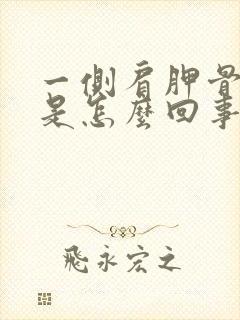 一側肩胛骨
是怎麼回事
飛永宏之